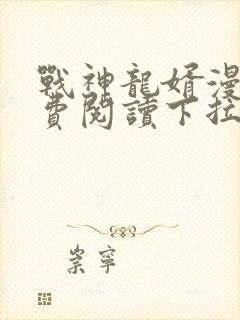 戰神龍婿漫
費閱讀下拉
崇寧